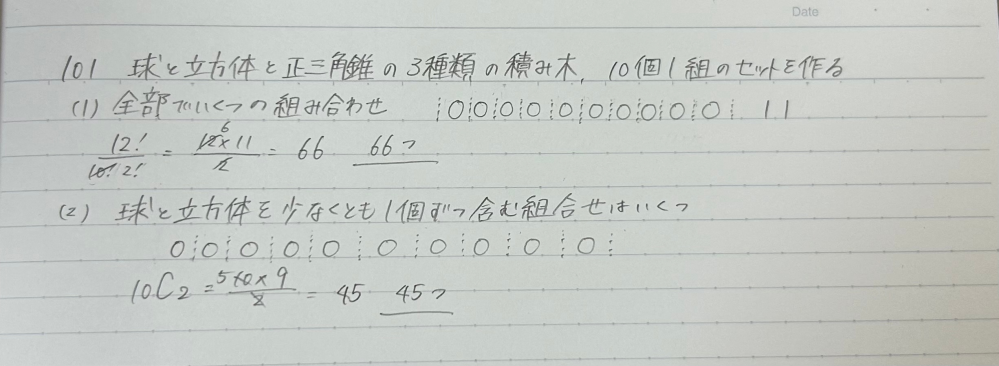 Date
101 球と立方体と正三角錐の3種類の積み木、10個1組のセットを作る
(1) 全部でいくつの組み合わせ ⋮○⋮○⋮○⋮○⋮○⋮○⋮○⋮○⋮○⋮○⋮ | |
12!/10!2! = 12×11/2 = 66 66つ
6
(2) 球と立方体を少なくとも1個ずつ含む組合せはいくつ
○⋮○⋮○⋮○⋮○⋮○⋮○⋮○⋮○⋮○⋮
10C2 = 5 10×9/2 = 45 45つ